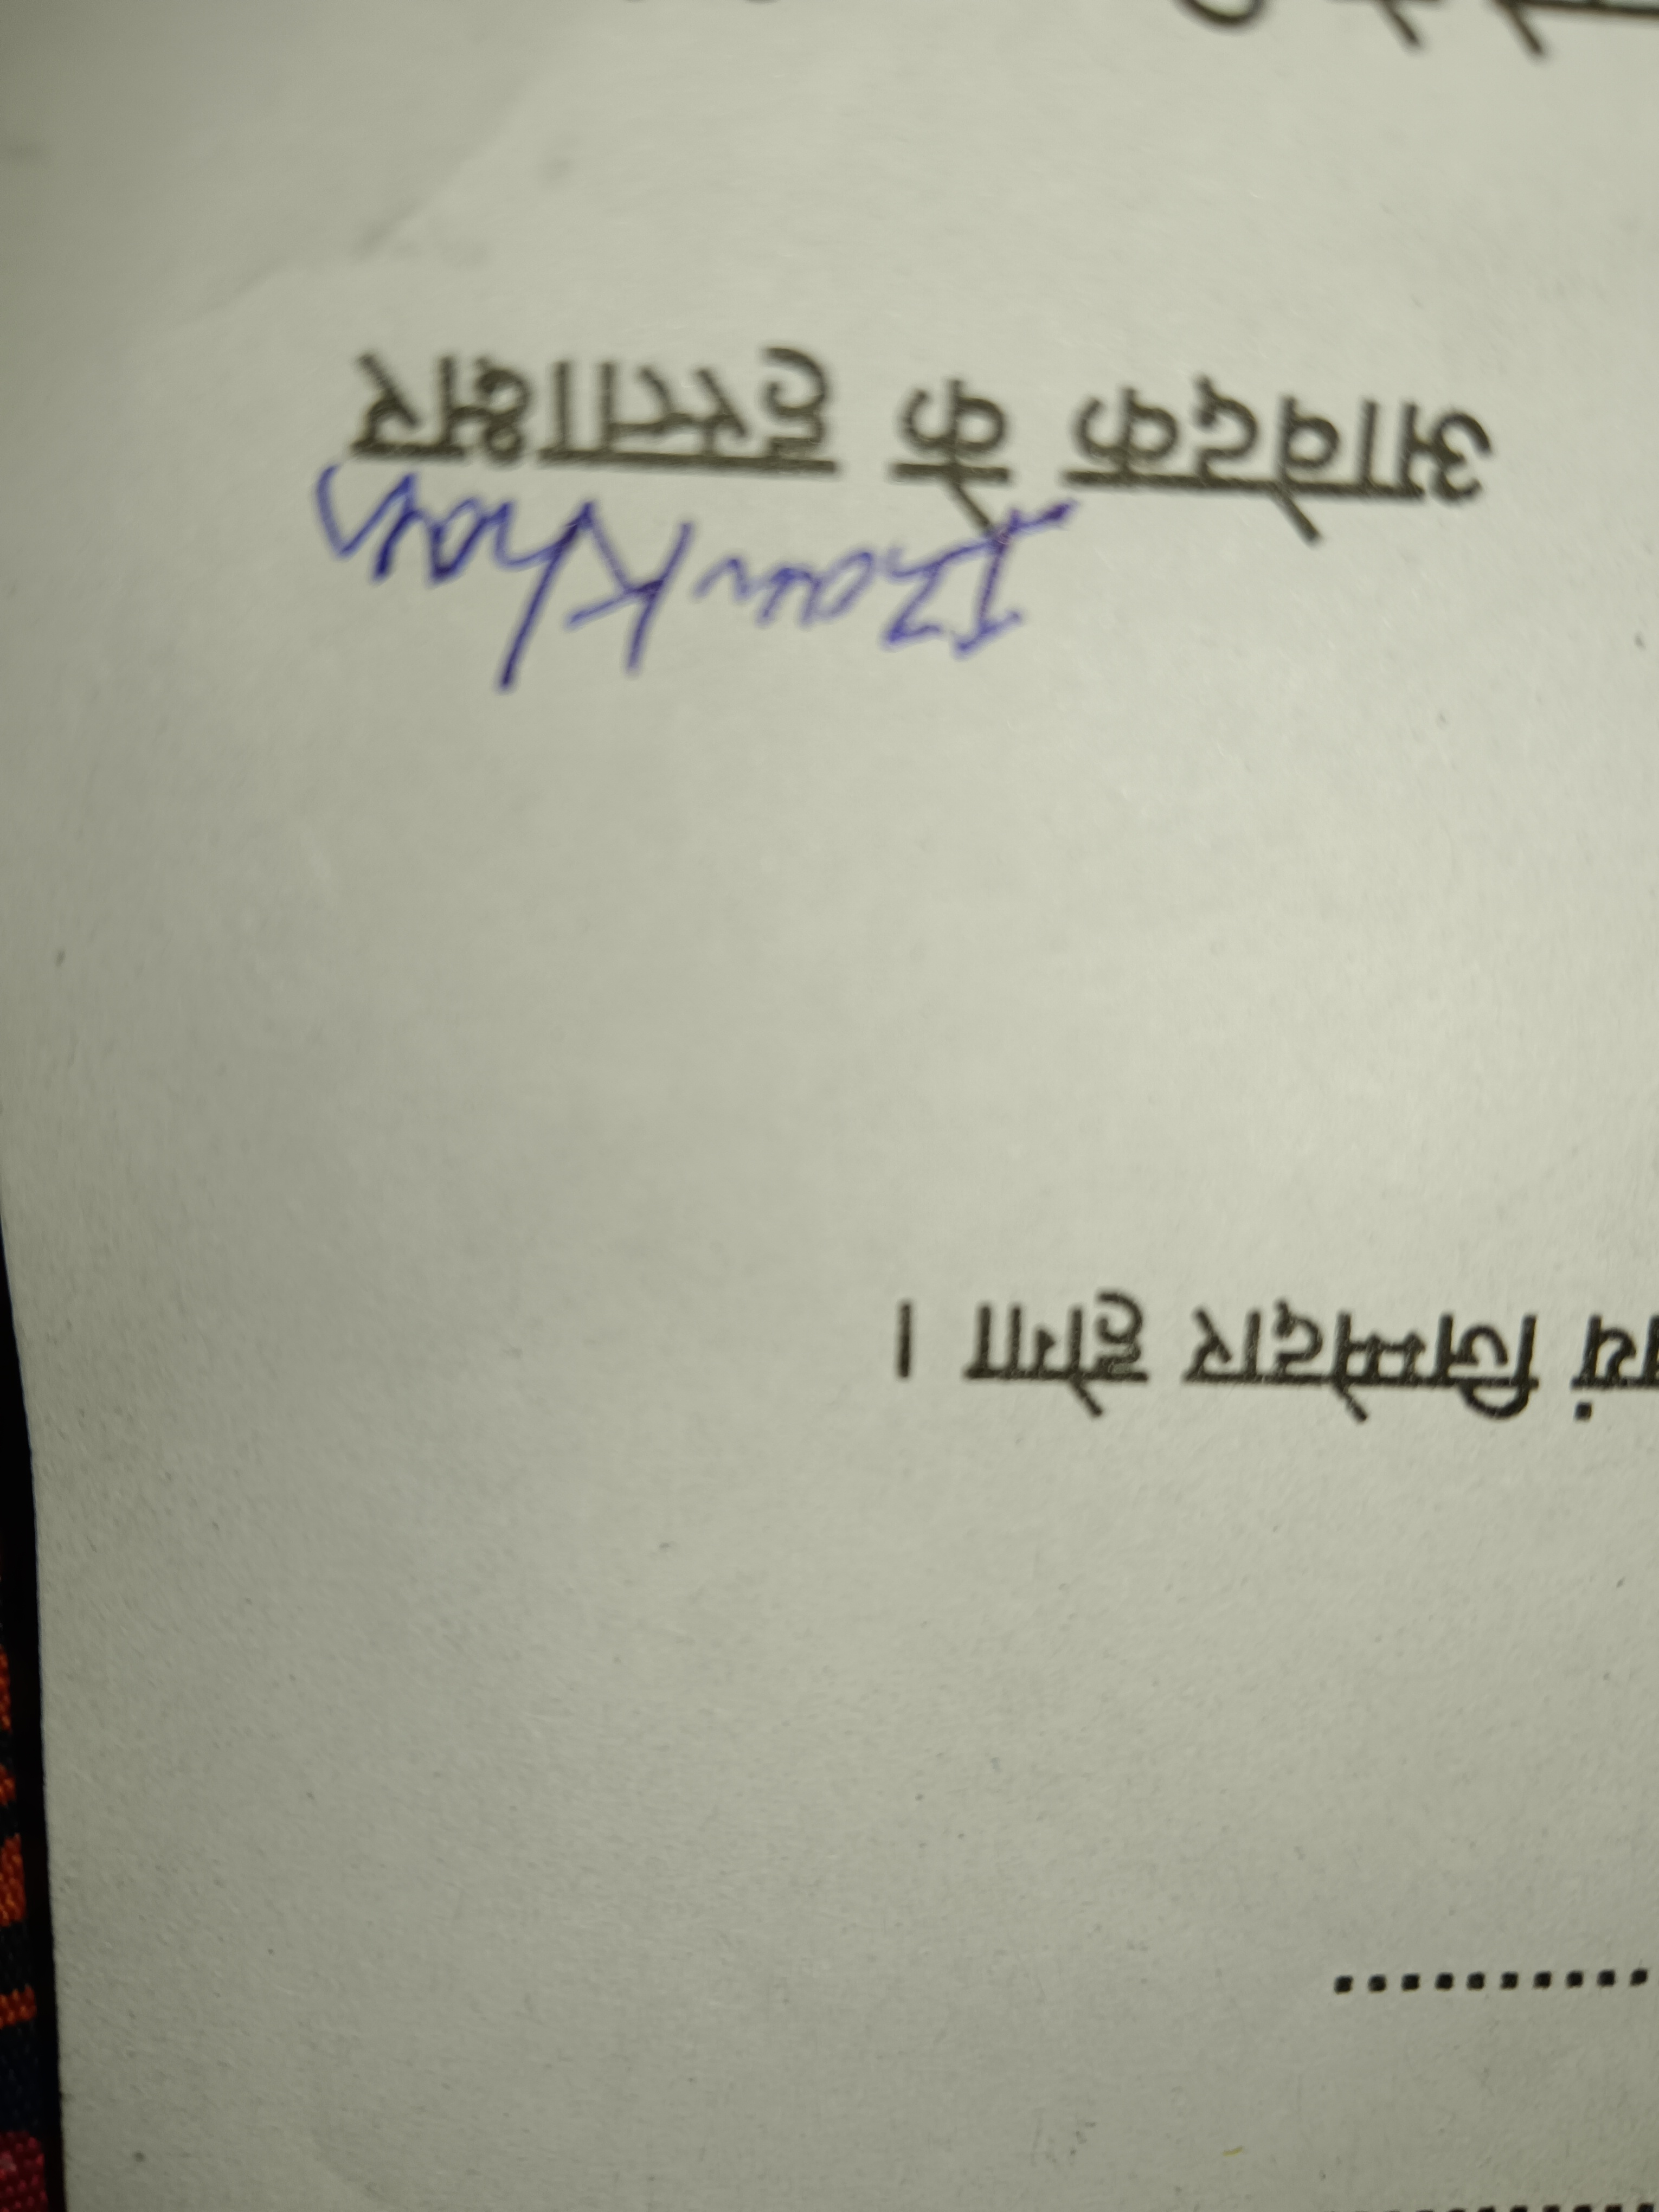 जिम्मेदार होगा ।
Khan
आवेदक के हस्ताक्षर